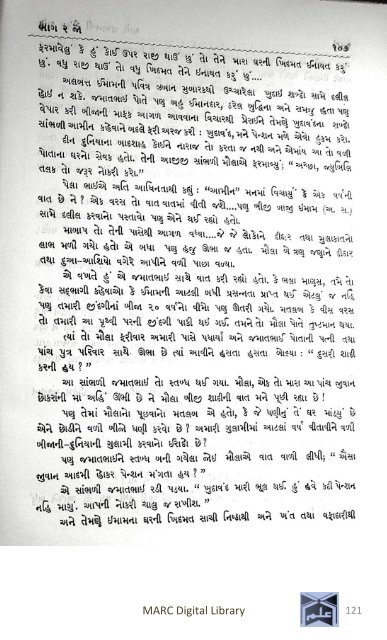 ભાગ ૨ જો
૧૦૭
ફરમાવેલું કે હું કોઈ ઉપર રાજી થાઉં છું તો તેને મારા ઘરની ખિદમત ઈનાયત કરૂં
છું. વધુ રાજી થાઉં તો વધુ ખિદમત તેને ઈનાયત કરૂં છું....
અલબત્ત ઈમામની પવિત્ર ઝબાન મુબારકથી ઉચ્ચારેલા ખુદાઈ શબ્દો સામે દલીલ
હોઈ ન શકે. જમાતભાઈ પોતે પણ બહુ ઈમાનદાર, ઠરેલ બુદ્ધિના અને સમજુ હતા પણ
વેપાર કરી બીજની માફક આગળ આવવાના વિચારથી પ્રેરાઈને તેમણે ખુદાવંદના શબ્દો
સાંભળી આમીન કહેવાને બદલે ફરી અરજ કરી : ખુદાવંદ, મને પેન્શન મળે એવો હુકમ કરો.
દીન દુનિયાના બાદશાહ કોઈને નારાજ તો કરતા જ નથી અને એમાંય આ તો વળી
પોતાના ઘરનો સેવક હતો. તેની આજીજી સાંભળી મૌલાએ ફરમાવ્યું: “ અચ્છા, જ્યુબિલિ
તલક તો જરૂર નોકરી કરો.”
પેલા ભાઈએ અતિ આધિનતાથી કહ્યું : “આમીન” મનમાં વિચાર્યું કે એક વર્ષની
વાત છે ને ? એક વરસ તો વાત વાતમાં વીતી જશે.....પણ બીજી બાજુ ઈમામ (અ. સ.)
સામે દલીલ કરવાનો પસ્તાવો પણ એને થઈ રહ્યો હતો.
માબાપ તો તેની પાસેથી આગળ વધ્યા....જે જે લોકોને દીદાર તથા મુલાકાતનો
લાભ મળી ગયો હતો એ બધા પણ હજુ ઊભા જ હતા. મૌલા બે ત્રણ જણાને દીદાર
તથા દુઆ-આશિષો વગેરે આપીને વળી પાછા વળ્યા.
એ વખતે હું એ જમાતભાઈ સાથે વાત કરી રહ્યો હતો. કે ભલા માણસ, તમે તો
કેવા સદ્ભાગી કહેવાઓ કે ઈમામની આટલી બધી પ્રસન્નતા પ્રાપ્ત થઈ એટલું જ નહિ
પણ તમારી જીંદગીનાં બીજાં ૨૦ વર્ષનો વીમો પણ ઉતરી ગયો. મતલબ કે વીસ વરસ
તો તમારી આ પૃથ્વી પરની જીંદગી પાકી થઈ ગઈ. તમને તો મૌલા પોતે તુષ્ટમાન થયા.
ત્યાં તો મૌલા ફરીવાર અમારી પાસે પધાર્યા અને જમાતભાઈ પોતાની પત્ની તથા
પાંચ પુત્ર પરિવાર સાથે ઊભા છે ત્યાં આવીને હસતા હસતા બોલ્યા : “ દુસરી શાદી
કરની હય ? ”
આ સાંભળી જમાતભાઈ તો સ્તબ્ધ થઈ ગયા. મૌલા, એક તો મારા આ પાંચ જુવાન
છોકરાંની મા અહિં ઊભી છે ને મૌલા બીજી શાદીની વાત મને પૂછી રહ્યા છે !
પણ તેમાં મૌલાનો પૂછવાનો મતલબ એ હતો, કે જે ધણીનું તેં ઘર માંડ્યું છે
એને છોડીને વળી બીજો ધણી કરવો છે ? અમારી ગુલામીમાં આટલાં વર્ષ વીતાવીને વળી
બીજાની-દુનિયાની ગુલામી કરવાનો ઈરાદો છે ?
પણ જમાતભાઈને સ્તબ્ધ બની ગયેલા જોઈ મૌલાએ વાત વાળી લીધી; “ ઐસા
જુવાન આદમી હોકર પેન્શન મંગતા હય ? ”
એ સાંભળી જમાતભાઈ રડી પડ્યા. “ ખુદાવંદ મારી ભૂલ થઈ. હું હવે કદી પેન્શન
નહિ માગું. આપની નોકરી ચાલુ જ રાખીશ. ”
અને તેમણે ઈમામના ઘરની ખિદમત સાચી નિષ્ઠાથી અને ખંત તથા વફાદારીથી
MARC Digital Library
121